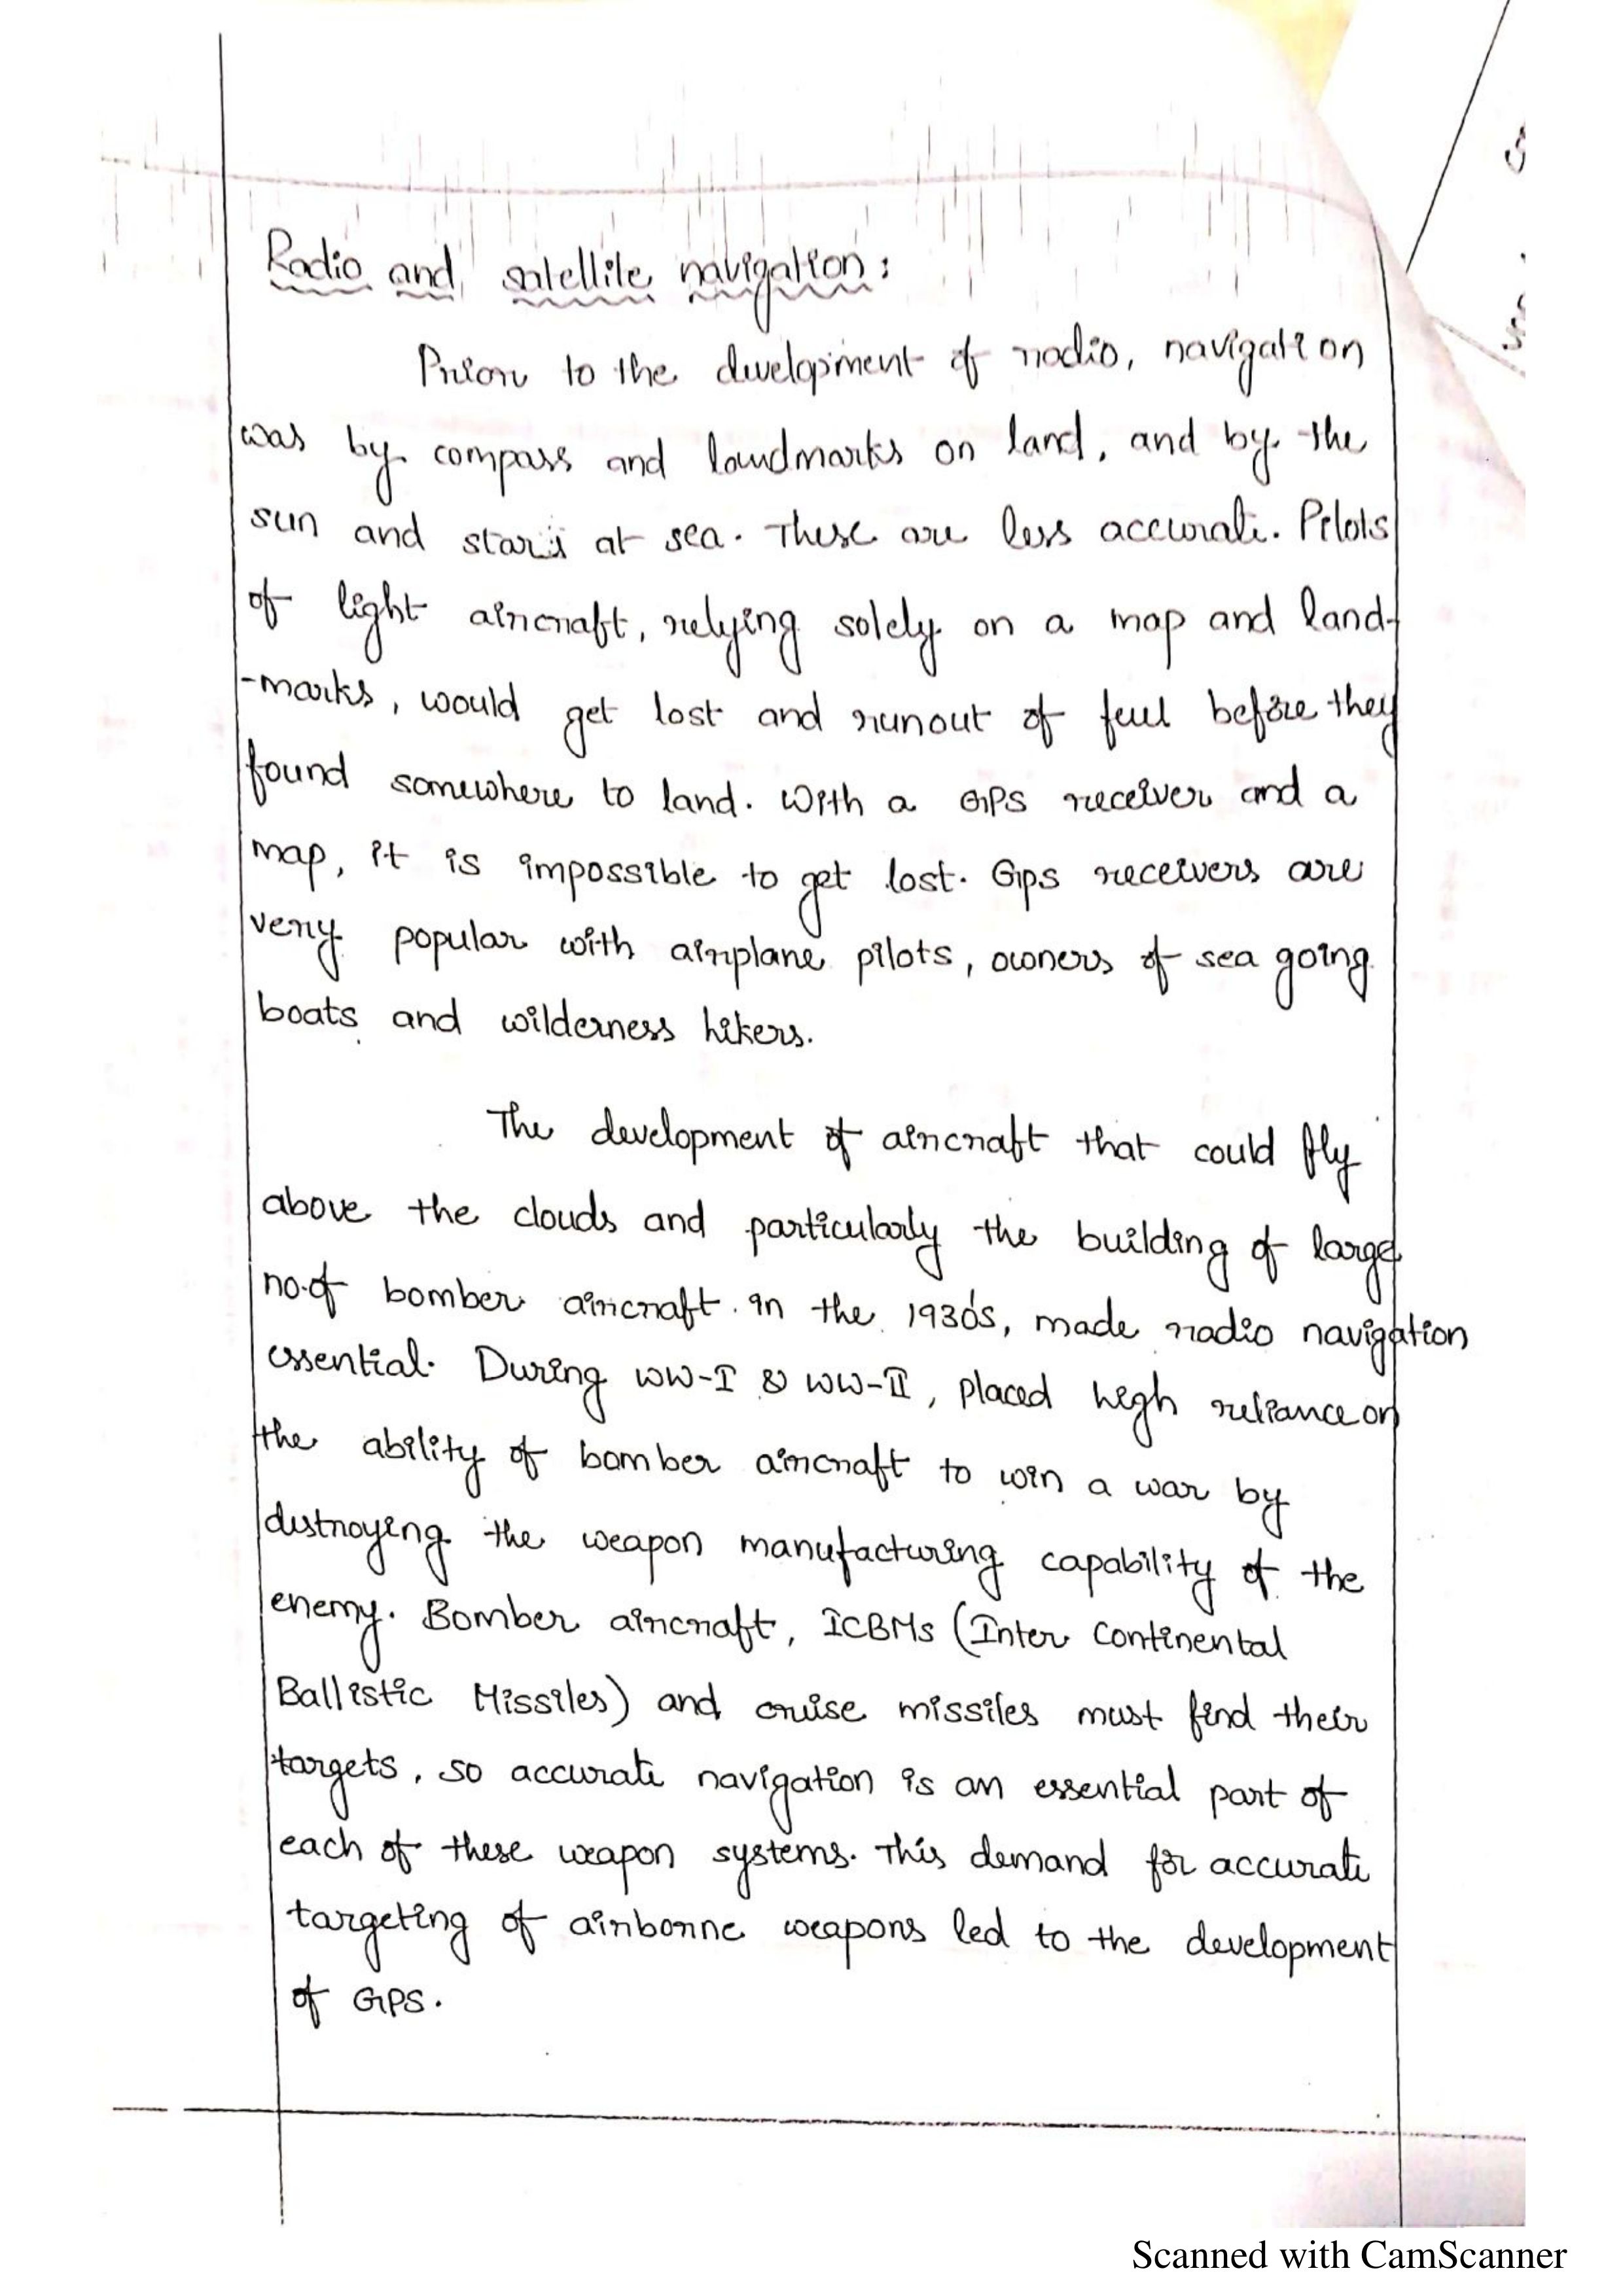 Radio and satellite navigation:
Prior to the development of radio, navigation
was by compass and landmarks on land, and by the
sun and stars at sea. These are less accurate. Pilots
of light aircraft, relying solely on a map and land-
-marks, would get lost and runout of fuel before they
found somewhere to land. With a GPS receiver and a
map, it is impossible to get lost. Gps receivers are
very popular with airplane pilots, owners of sea going
boats and wilderness hikers.
The development of aircraft that could fly
above the clouds and particularly the building of large
no.of bomber aircraft in the 1930's, made radio navigation
essential. During WW-I & WW-II, placed high reliance on
the ability of bomber aircraft to win a war by
destroying the weapon manufacturing capability of the
enemy. Bomber aircraft, ICBMs (Inter Continental
Ballistic Missiles) and cruise missiles must find their
targets, so accurate navigation is an essential part of
each of these weapon systems. This demand for accurate
targeting of airborne weapons led to the development
of GPS.
Scanned with CamScanner